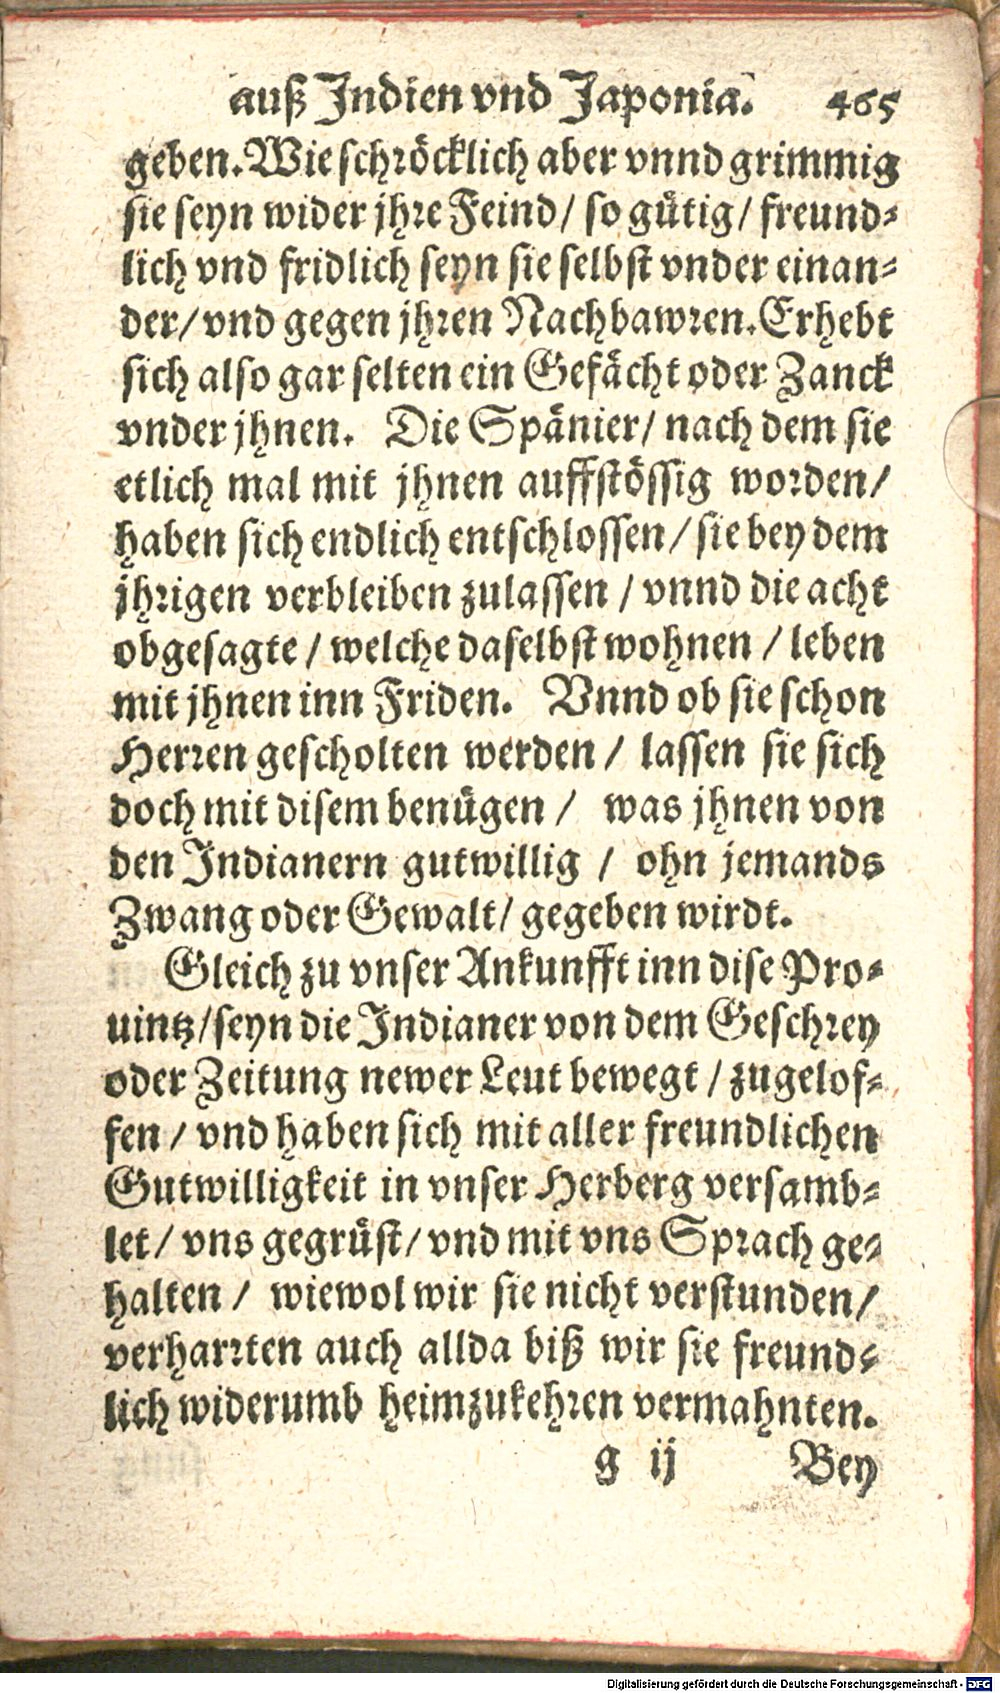 auß Indien vnd Japonia. 465
geben. Wie schröcklich aber vnnd grimmig
sie seyn wider jhre Feind/ so gütig/ freund-
lich vnd fridlich seyn sie selbst vnder einan-
der/ vnd gegen jhren Nachbawren. Erhebt
sich also gar selten ein Gefächt oder Zanck
vnder jhnen. Die Spänier/ nach dem sie
etlich mal mit jhnen auffstössig worden/
haben sich endlich entschlossen/ sie bey dem
jhrigen verbleiben zulassen / vnnd die acht
obgesagte / welche daselbst wohnen / leben
mit jhnen inn Friden. Vnnd ob sie schon
Herren gescholten werden / lassen sie sich
doch mit disem benügen / was jhnen von
den Indianern gutwillig / ohn jemands
Zwang oder Gewalt/ gegeben wirdt.
Gleich zu vnser Ankunfft inn dise Pro-
uintz/ seyn die Indianer von dem Geschrey
oder Zeitung newer Leut bewegt / zugelof-
fen / vnd haben sich mit aller freundlichen
Gutwilligkeit in vnser Herberg versamb-
let/ vns gegrüst/ vnd mit vns Sprach ge-
halten / wiewol wir sie nicht verstunden/
verharrten auch allda biß wir sie freund-
lich widerumb heimzukehren vermahnten.
g ij Bey
Digitalisierung gefördert durch die Deutsche Forschungsgemeinschaft - DFG